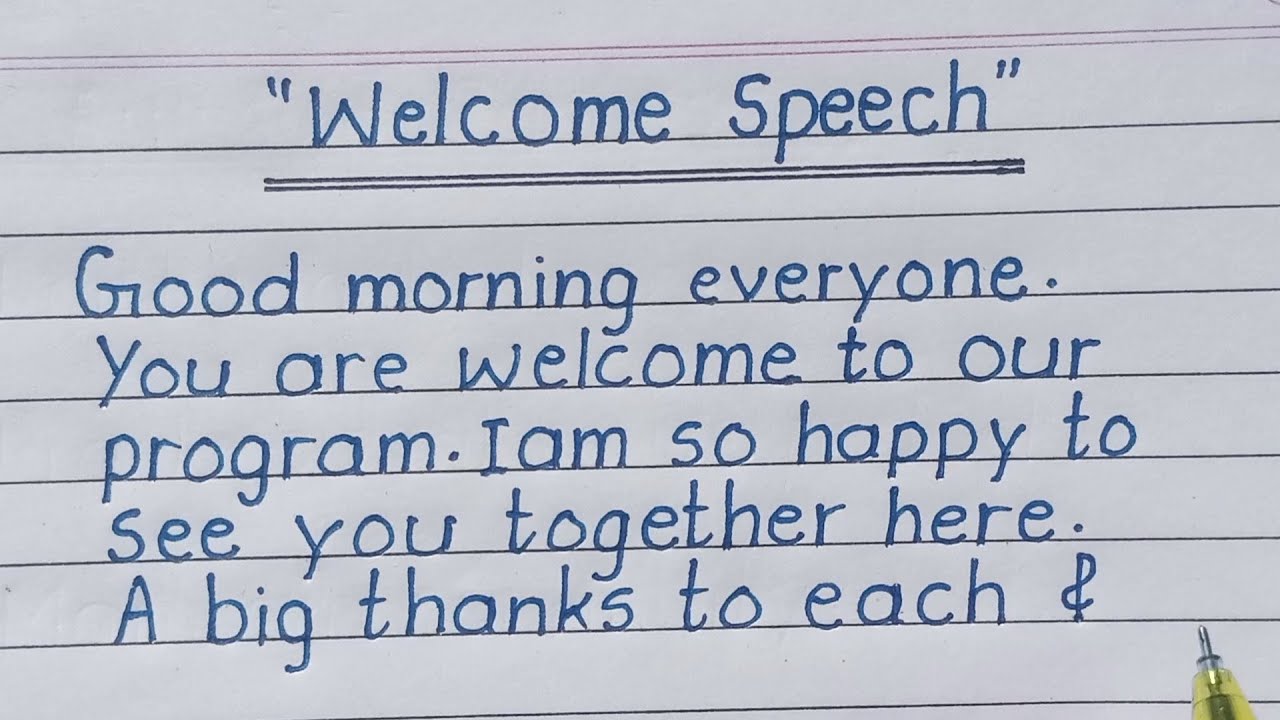 "Welcome Speech"
Good morning everyone.
You are welcome to our
program. I am so happy to
see you together here.
A big thanks to each &